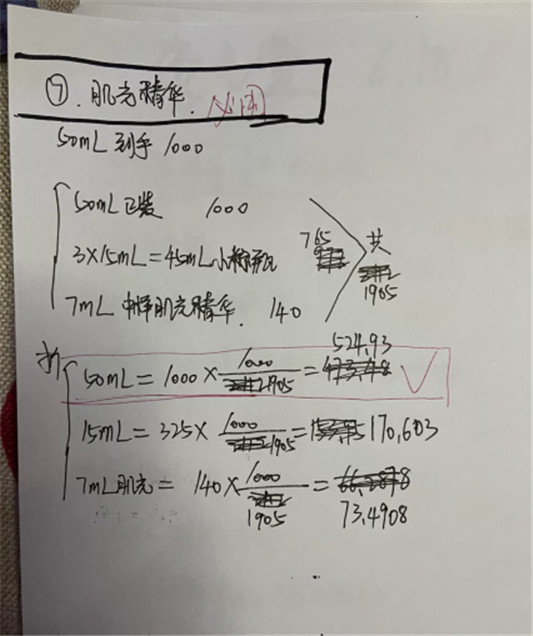 ⑦. 肌光精华. 必囤
50mL 到手 1000
50mL 正装 1000
3×15mL=45mL小棕瓶 765
共 1905
7mL 中样肌光精华. 140
折
50mL = 1000 × 1000/1905 = 524.93 ✓
15mL = 325 × 1000/1905 = 170.603
7mL肌光 = 140 × 1000/1905 = 73.4908